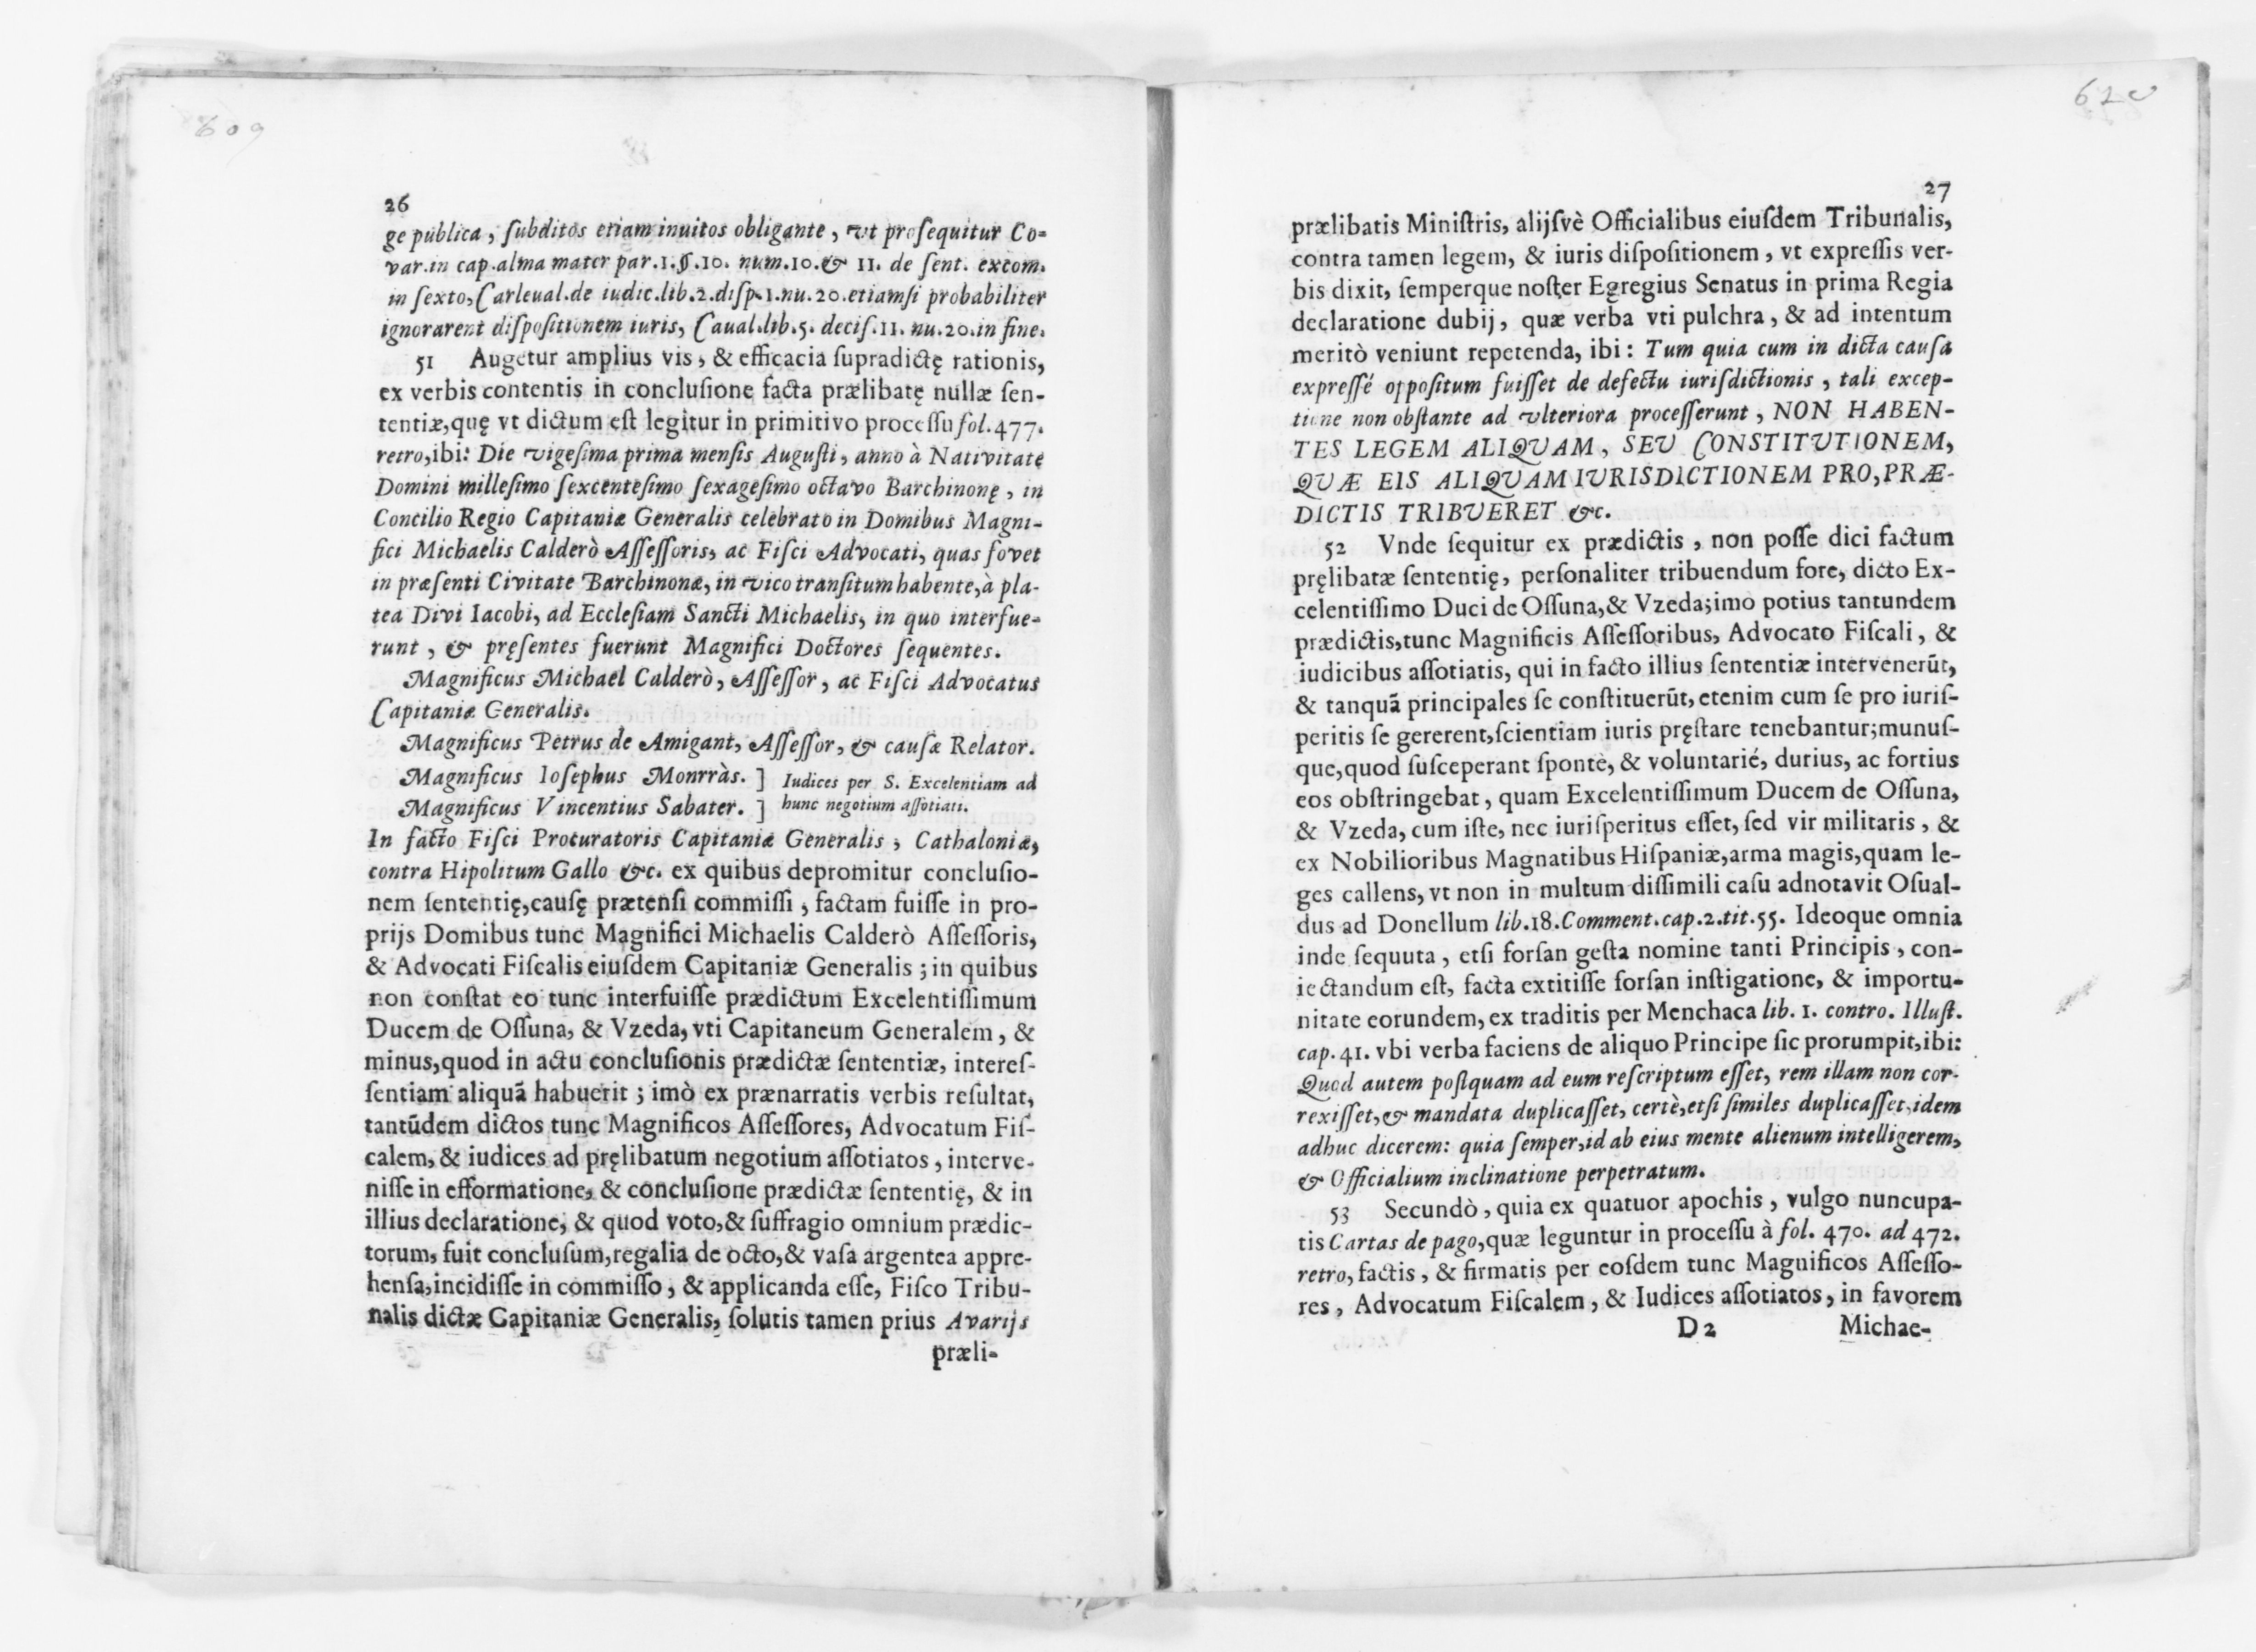 609
26
ge publica, ſubditos etiam inuitos obligante, vt proſequitur Co-
var.in cap.alma mater par.1.§.10. num.10.& 11. de ſent. excom.
in ſexto, Carleual.de iudic.lib.2.diſp.1.nu.20.etiamſi probabiliter
ignorarent diſpoſitionem iuris, Caual.lib.5. deciſ.11. nu.20.in fine.
51 Augetur amplius vis, & efficacia ſupradictę rationis,
ex verbis contentis in concluſione facta prælibatę nullæ ſen-
tentiæ,quę vt dictum eſt legitur in primitivo proceſſu fol.477.
retro,ibi: Die vigeſima prima menſis Auguſti, anno à Nativitate
Domini milleſimo ſexcenteſimo ſexageſimo octavo Barchinonę, in
Concilio Regio Capitaniæ Generalis celebrato in Domibus Magni-
fici Michaelis Calderò Aſſeſſoris, ac Fiſci Advocati, quas fovet
in præſenti Civitate Barchinonæ, in vico tranſitum habente,à pla-
tea Divi Iacobi, ad Eccleſiam Sancti Michaelis, in quo interfue-
runt, & pręſentes fuerunt Magnifici Doctores ſequentes.
Magnificus Michael Calderò, Aſſeſſor, ac Fiſci Advocatus
Capitaniæ Generalis.
Magnificus Petrus de Amigant, Aſſeſſor, & cauſæ Relator.
Magnificus Ioſephus Monrràs. ] Iudices per S. Excelentiam ad
Magnificus Vincentius Sabater. ] hunc negotium aſſotiati.
In facto Fiſci Procuratoris Capitaniæ Generalis, Cathaloniæ,
contra Hipolitum Gallo &c. ex quibus depromitur concluſio-
nem ſententię,cauſę prætenſi commiſſi, factam fuiſſe in pro-
prijs Domibus tunc Magnifici Michaelis Calderò Aſſeſſoris,
& Advocati Fiſcalis eiuſdem Capitaniæ Generalis; in quibus
non conſtat eo tunc interfuiſſe prædictum Excelentiſſimum
Ducem de Oſſuna, & Vzeda, vti Capitaneum Generalem, &
minus,quod in actu concluſionis prædictæ ſententiæ, intereſ-
ſentiam aliquã habuerit; imò ex prænarratis verbis reſultat,
tantũdem dictos tunc Magnificos Aſſeſſores, Advocatum Fiſ-
calem, & iudices ad pręlibatum negotium aſſotiatos, interve-
niſſe in efformatione, & concluſione prædictæ ſententię, & in
illius declaratione, & quod voto,& ſuffragio omnium prædic-
torum, fuit concluſum,regalia de octo,& vaſa argentea appre-
henſa,incidiſſe in commiſſo, & applicanda eſſe, Fiſco Tribu-
nalis dictæ Capitaniæ Generalis, ſolutis tamen prius Avarijs
præli-
620
27
prælibatis Miniſtris, alijſvè Officialibus eiuſdem Tribunalis,
contra tamen legem, & iuris diſpoſitionem, vt expreſſis ver-
bis dixit, ſemperque noſter Egregius Senatus in prima Regia
declaratione dubij, quæ verba vti pulchra, & ad intentum
meritò veniunt repetenda, ibi: Tum quia cum in dicta cauſa
expreſſé oppoſitum fuiſſet de defectu iuriſdictionis, tali excep-
tione non obſtante ad vlteriora proceſſerunt, NON HABEN-
TES LEGEM ALIQUAM, SEV CONSTITVTIONEM,
QVÆ EIS ALIQUAM IVRISDICTIONEM PRO, PRÆ-
DICTIS TRIBVERET &c.
52 Vnde ſequitur ex prædictis, non poſſe dici factum
pręlibatæ ſententię, perſonaliter tribuendum fore, dicto Ex-
celentiſſimo Duci de Oſſuna,& Vzeda;imo potius tantundem
prædictis,tunc Magnificis Aſſeſſoribus, Advocato Fiſcali, &
iudicibus aſſotiatis, qui in facto illius ſententiæ intervenerũt,
& tanquã principales ſe conſtituerũt, etenim cum ſe pro iuriſ-
peritis ſe gererent,ſcientiam iuris pręſtare tenebantur;munuſ-
que,quod ſuſceperant ſpontè, & voluntarié, durius, ac fortius
eos obſtringebat, quam Excelentiſſimum Ducem de Oſſuna,
& Vzeda, cum iſte, nec iuriſperitus eſſet, ſed vir militaris, &
ex Nobilioribus Magnatibus Hiſpaniæ,arma magis,quam le-
ges callens, vt non in multum diſſimili caſu adnotavit Oſual-
dus ad Donellum lib.18.Comment.cap.2.tit.55. Ideoque omnia
inde ſequuta, etſi forſan geſta nomine tanti Principis, con-
iectandum eſt, facta extitiſſe forſan inſtigatione, & importu-
nitate eorundem, ex traditis per Menchaca lib. 1. contro. Illuſt.
cap. 41. vbi verba faciens de aliquo Principe ſic prorumpit,ibi:
Quod autem poſtquam ad eum reſcriptum eſſet, rem illam non cor-
rexiſſet,& mandata duplicaſſet, certè,etſi ſimiles duplicaſſet,idem
adhuc dicerem: quia ſemper,id ab eius mente alienum intelligerem,
& Officialium inclinatione perpetratum.
53 Secundò, quia ex quatuor apochis, vulgo nuncupa-
tis Cartas de pago,quæ leguntur in proceſſu à fol. 470. ad 472.
retro, factis, & firmatis per eoſdem tunc Magnificos Aſſeſſo-
res, Advocatum Fiſcalem, & Iudices aſſotiatos, in favorem
D 2 Michae-